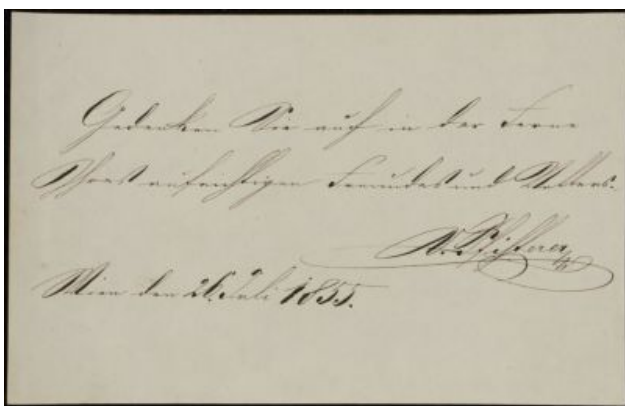 Gedenken Sie auch in der Ferne
Ihres aufrichtigen Freundes und Vetters.
Wien den 26. Juli 1855.